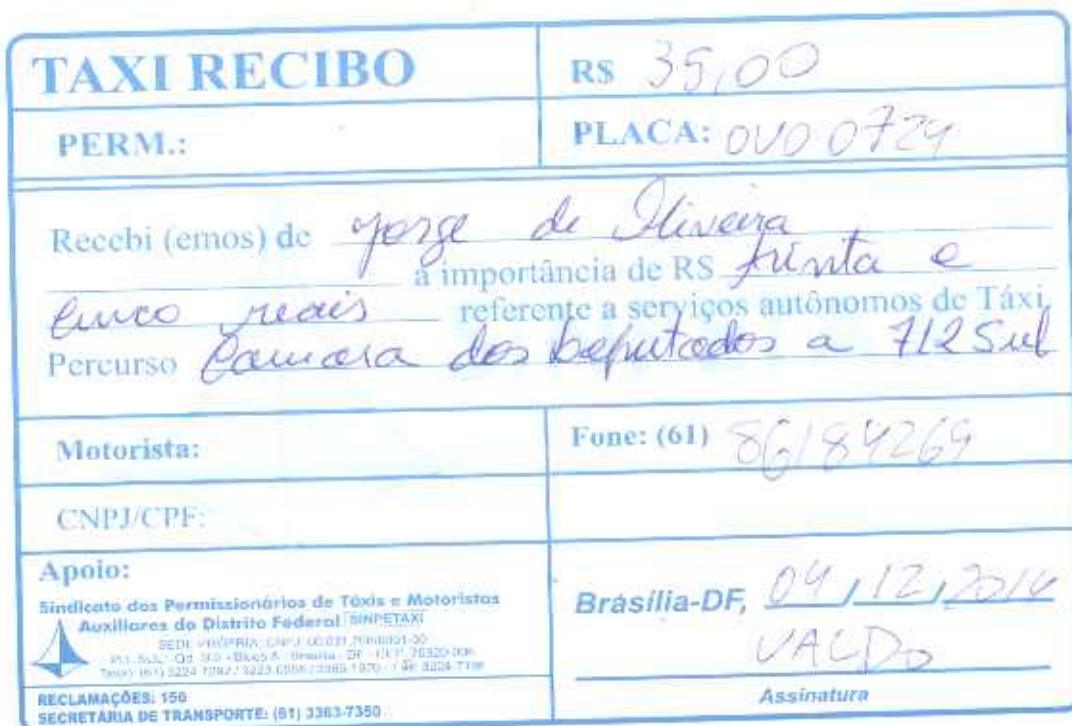 TAXI RECIBO
R$ 35,00
PERM.:
PLACA: OVO 0724
Recebi (emos) de Jorge de Oliveira
a importância de R$ trinta e
cinco reais referente a serviços autônomos de Táxi,
Percurso Camara dos Deputados a 712 Sul
Motorista:
Fone: (61) 86184269
CNPJ/CPF:
Apoio:
Sindicato dos Permissionários de Táxis e Motoristas
Auxiliares do Distrito Federal SINPETAXI
SEDE PRÓPRIA
Brasília-DF, 04/12/2014
VALDO
Assinatura
RECLAMAÇÕES: 156
SECRETARIA DE TRANSPORTE: (61) 3363-7350